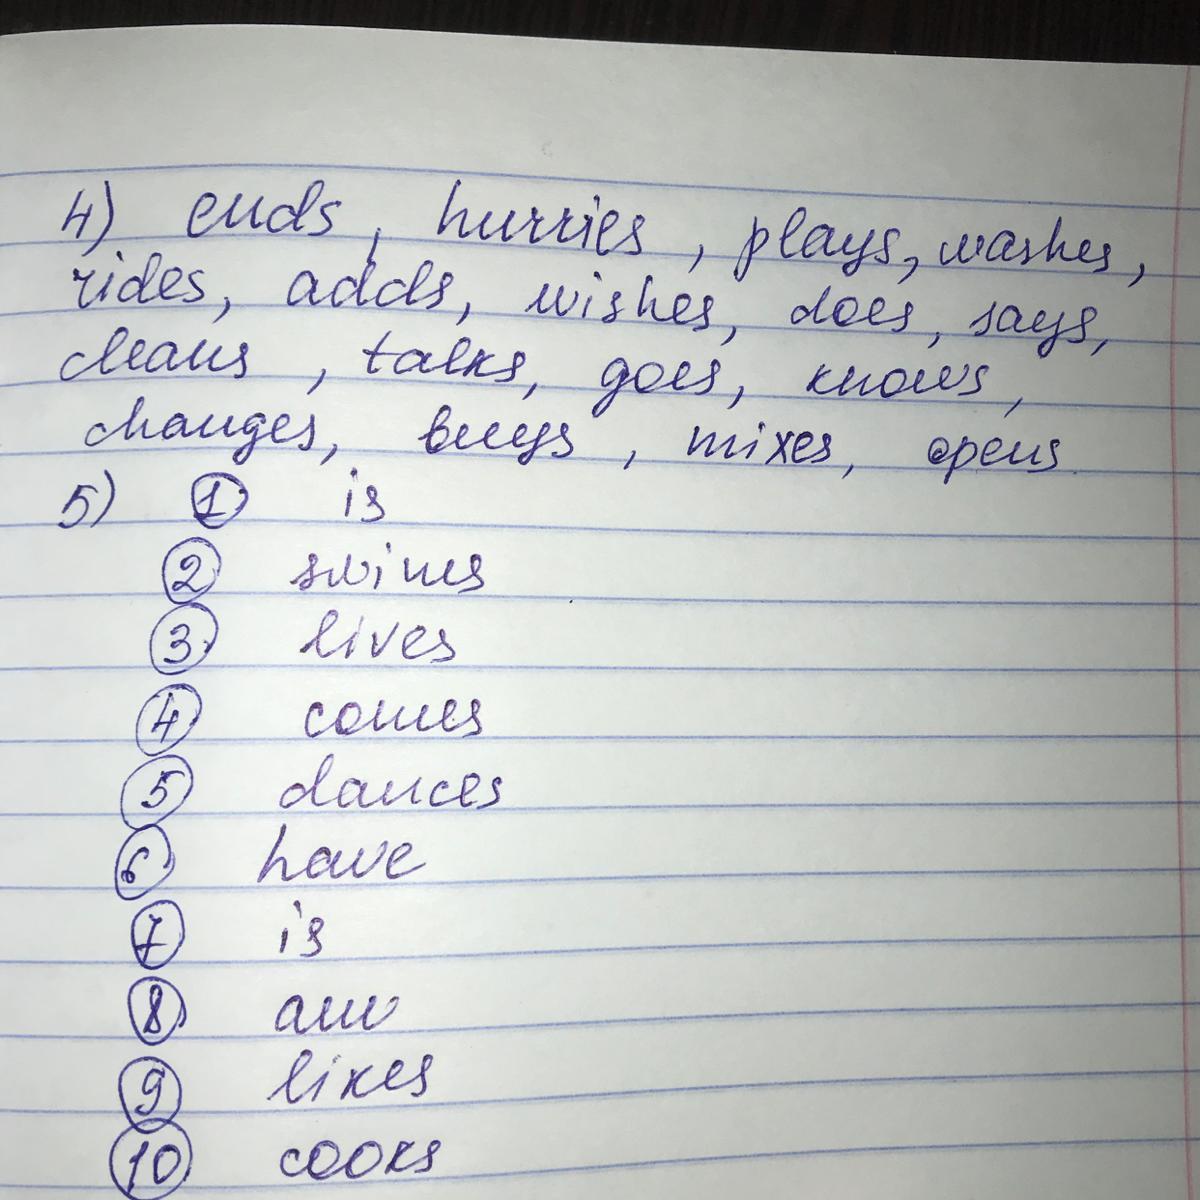 4) ends, hurries, plays, washes,
rides, adds, wishes, does, says,
cleans, talks, goes, knows,
changes, buys, mixes, opens
5) 1 is
2 swims
3 lives
4 comes
5 dances
6 have
7 is
8 am
9 likes
10 cooks